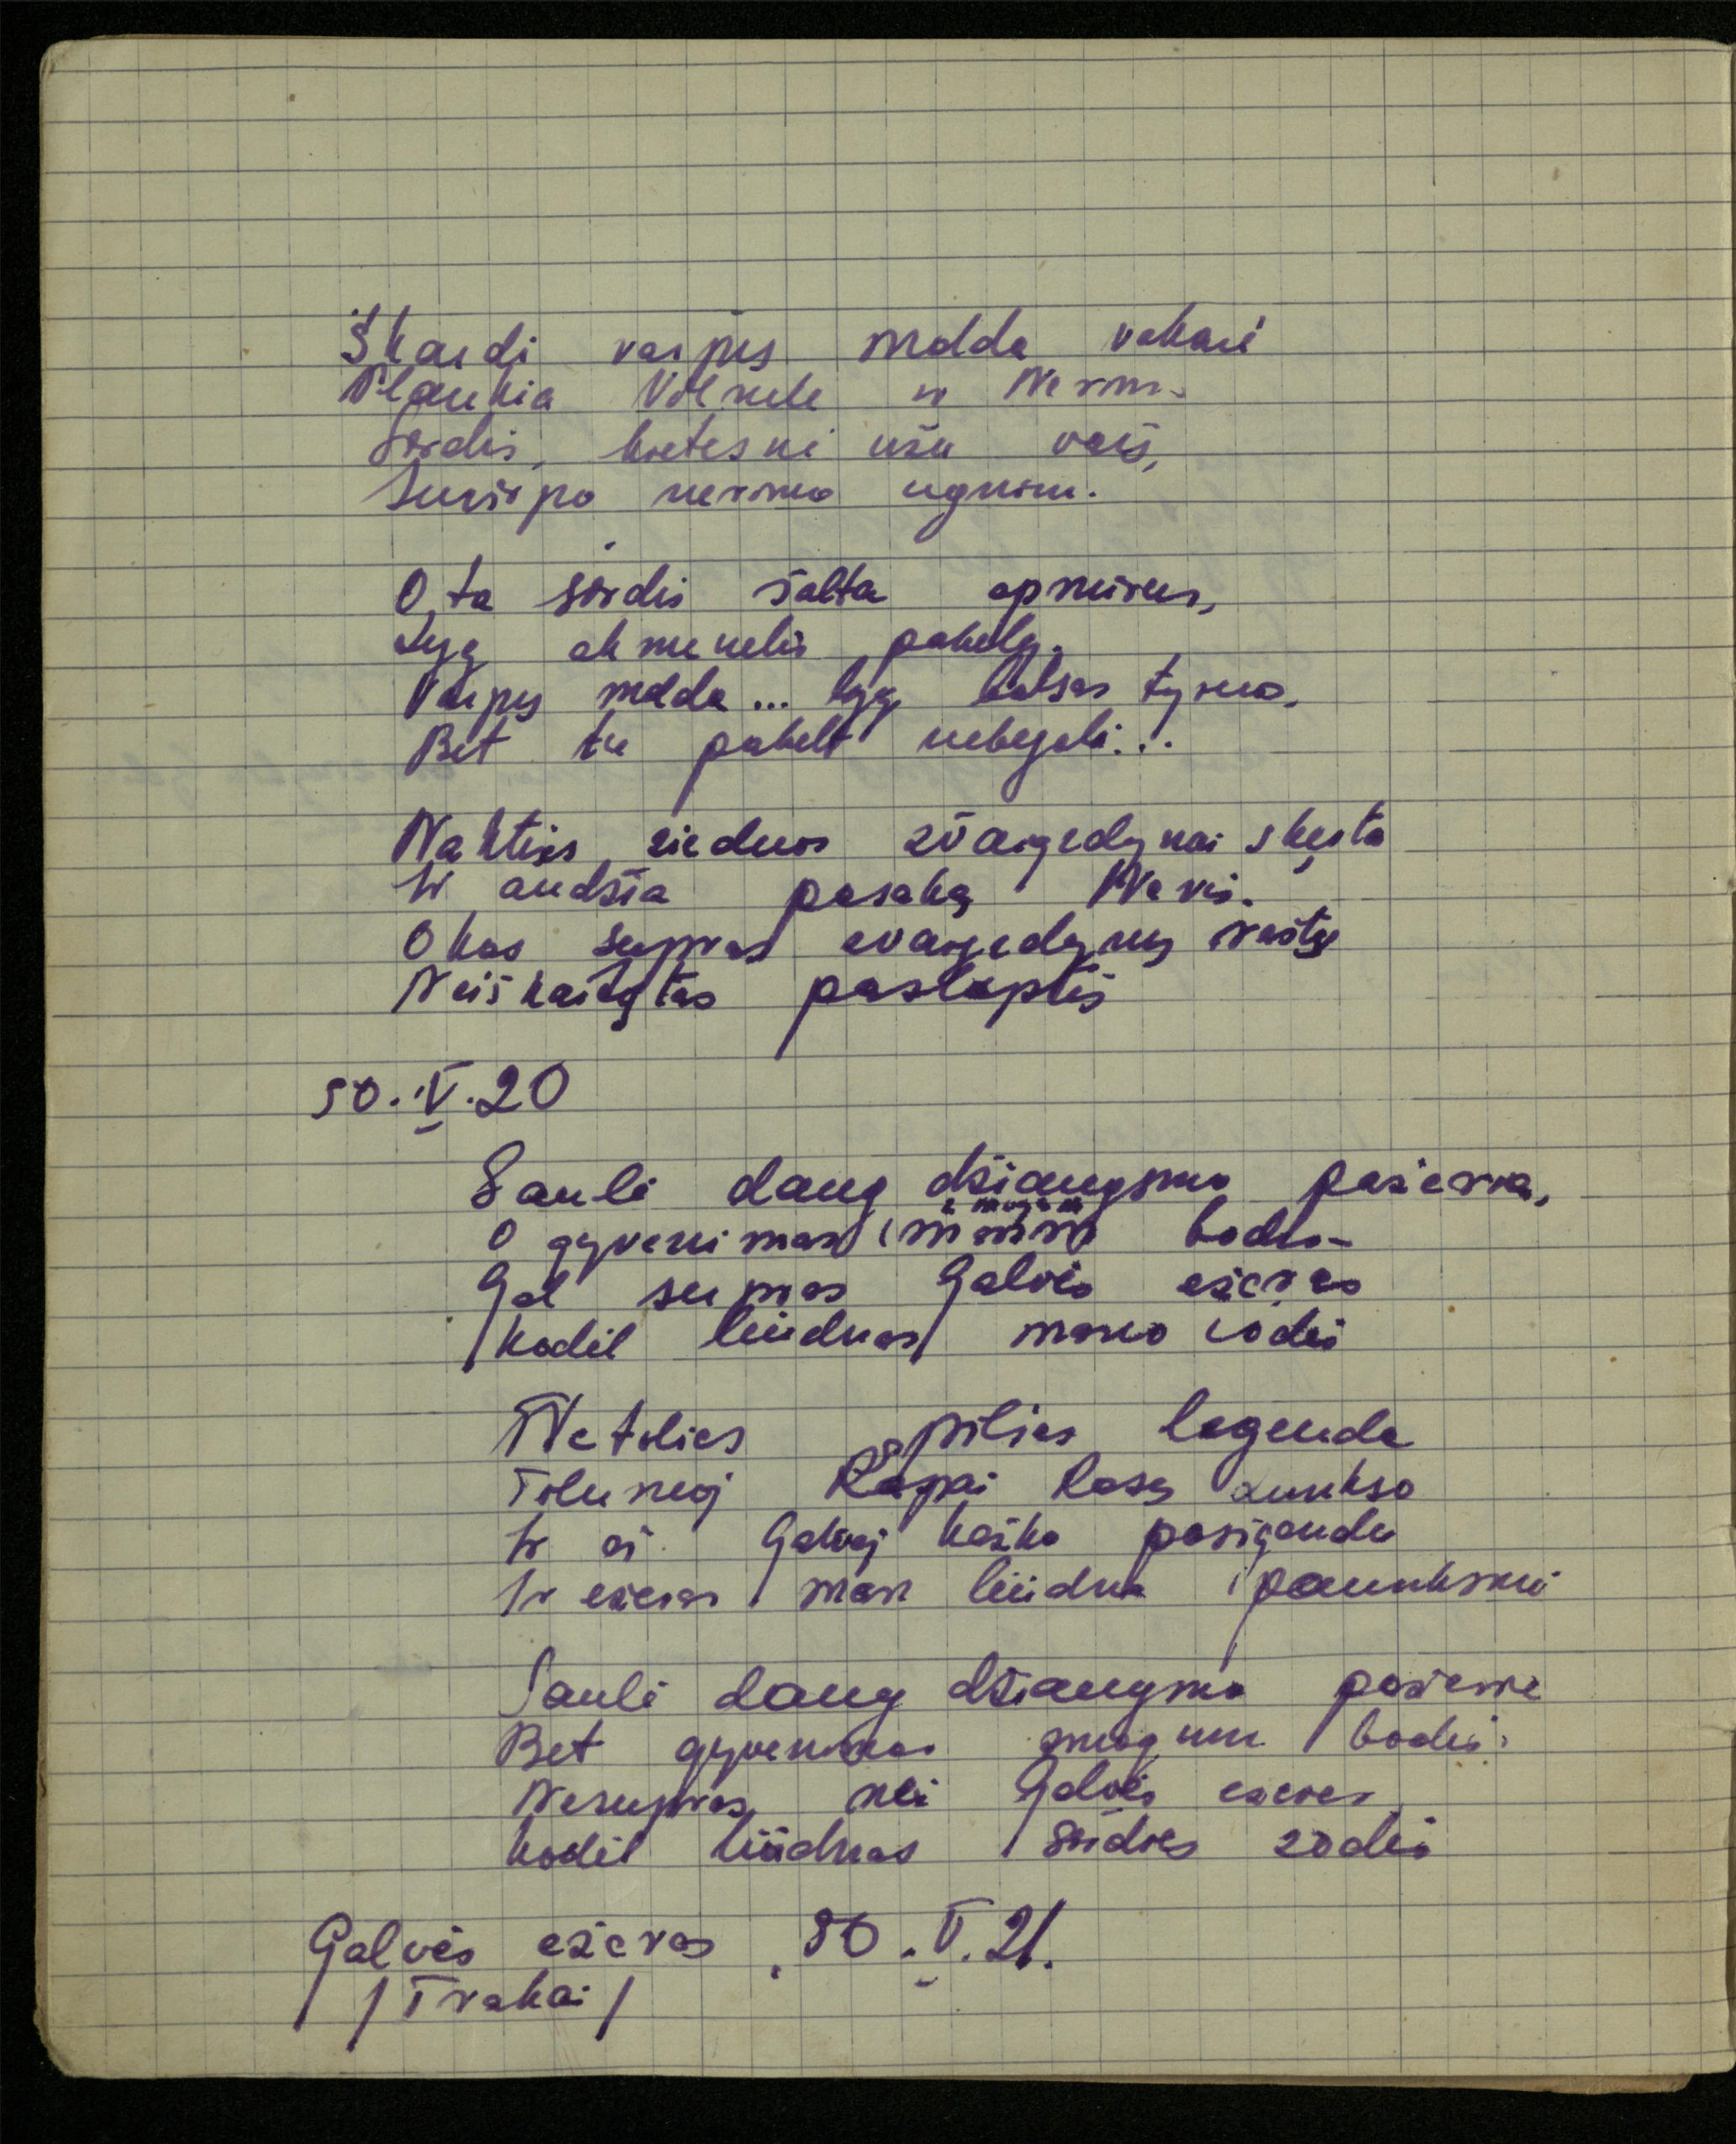 Skardi varpų malda vakarė
Plaukia Vilnele ir Nerim.
Širdis, kietesnė už varį,
Suvirpa nerimo ugnim.
O, ta širdis šalta apmirus,
Lyg akmenėlis pakely.
Varpų malda... lyg balsas tyrus,
Bet tu pakelt nebegali...
Nakties žieduos žvaigždynai skęsta
Ir audžia pasaką Neris.
O kas supras žvaigždynų raštą
Neišskaitytas paslaptis
50.V.20
Saulė daug džiaugsmo pažeria,
O gyvenimas žmogum bodis-
Gal supras Galvės ežeras
Kodėl liūdnas mano žodis
Netolies pilies legenda
Tolumoj kapai rasų
Ir aš Galvėj kažko pasigendu
Ir ežeras man liūdna
Saulė daug džiaugsmo pažeria
Bet gyvenimas žmogum bodis.
Nesupras nei Galvės ežeras
Kodėl liūdnas širdies žodis
Galvės ežeras. 50.V.21.
/Trakai/